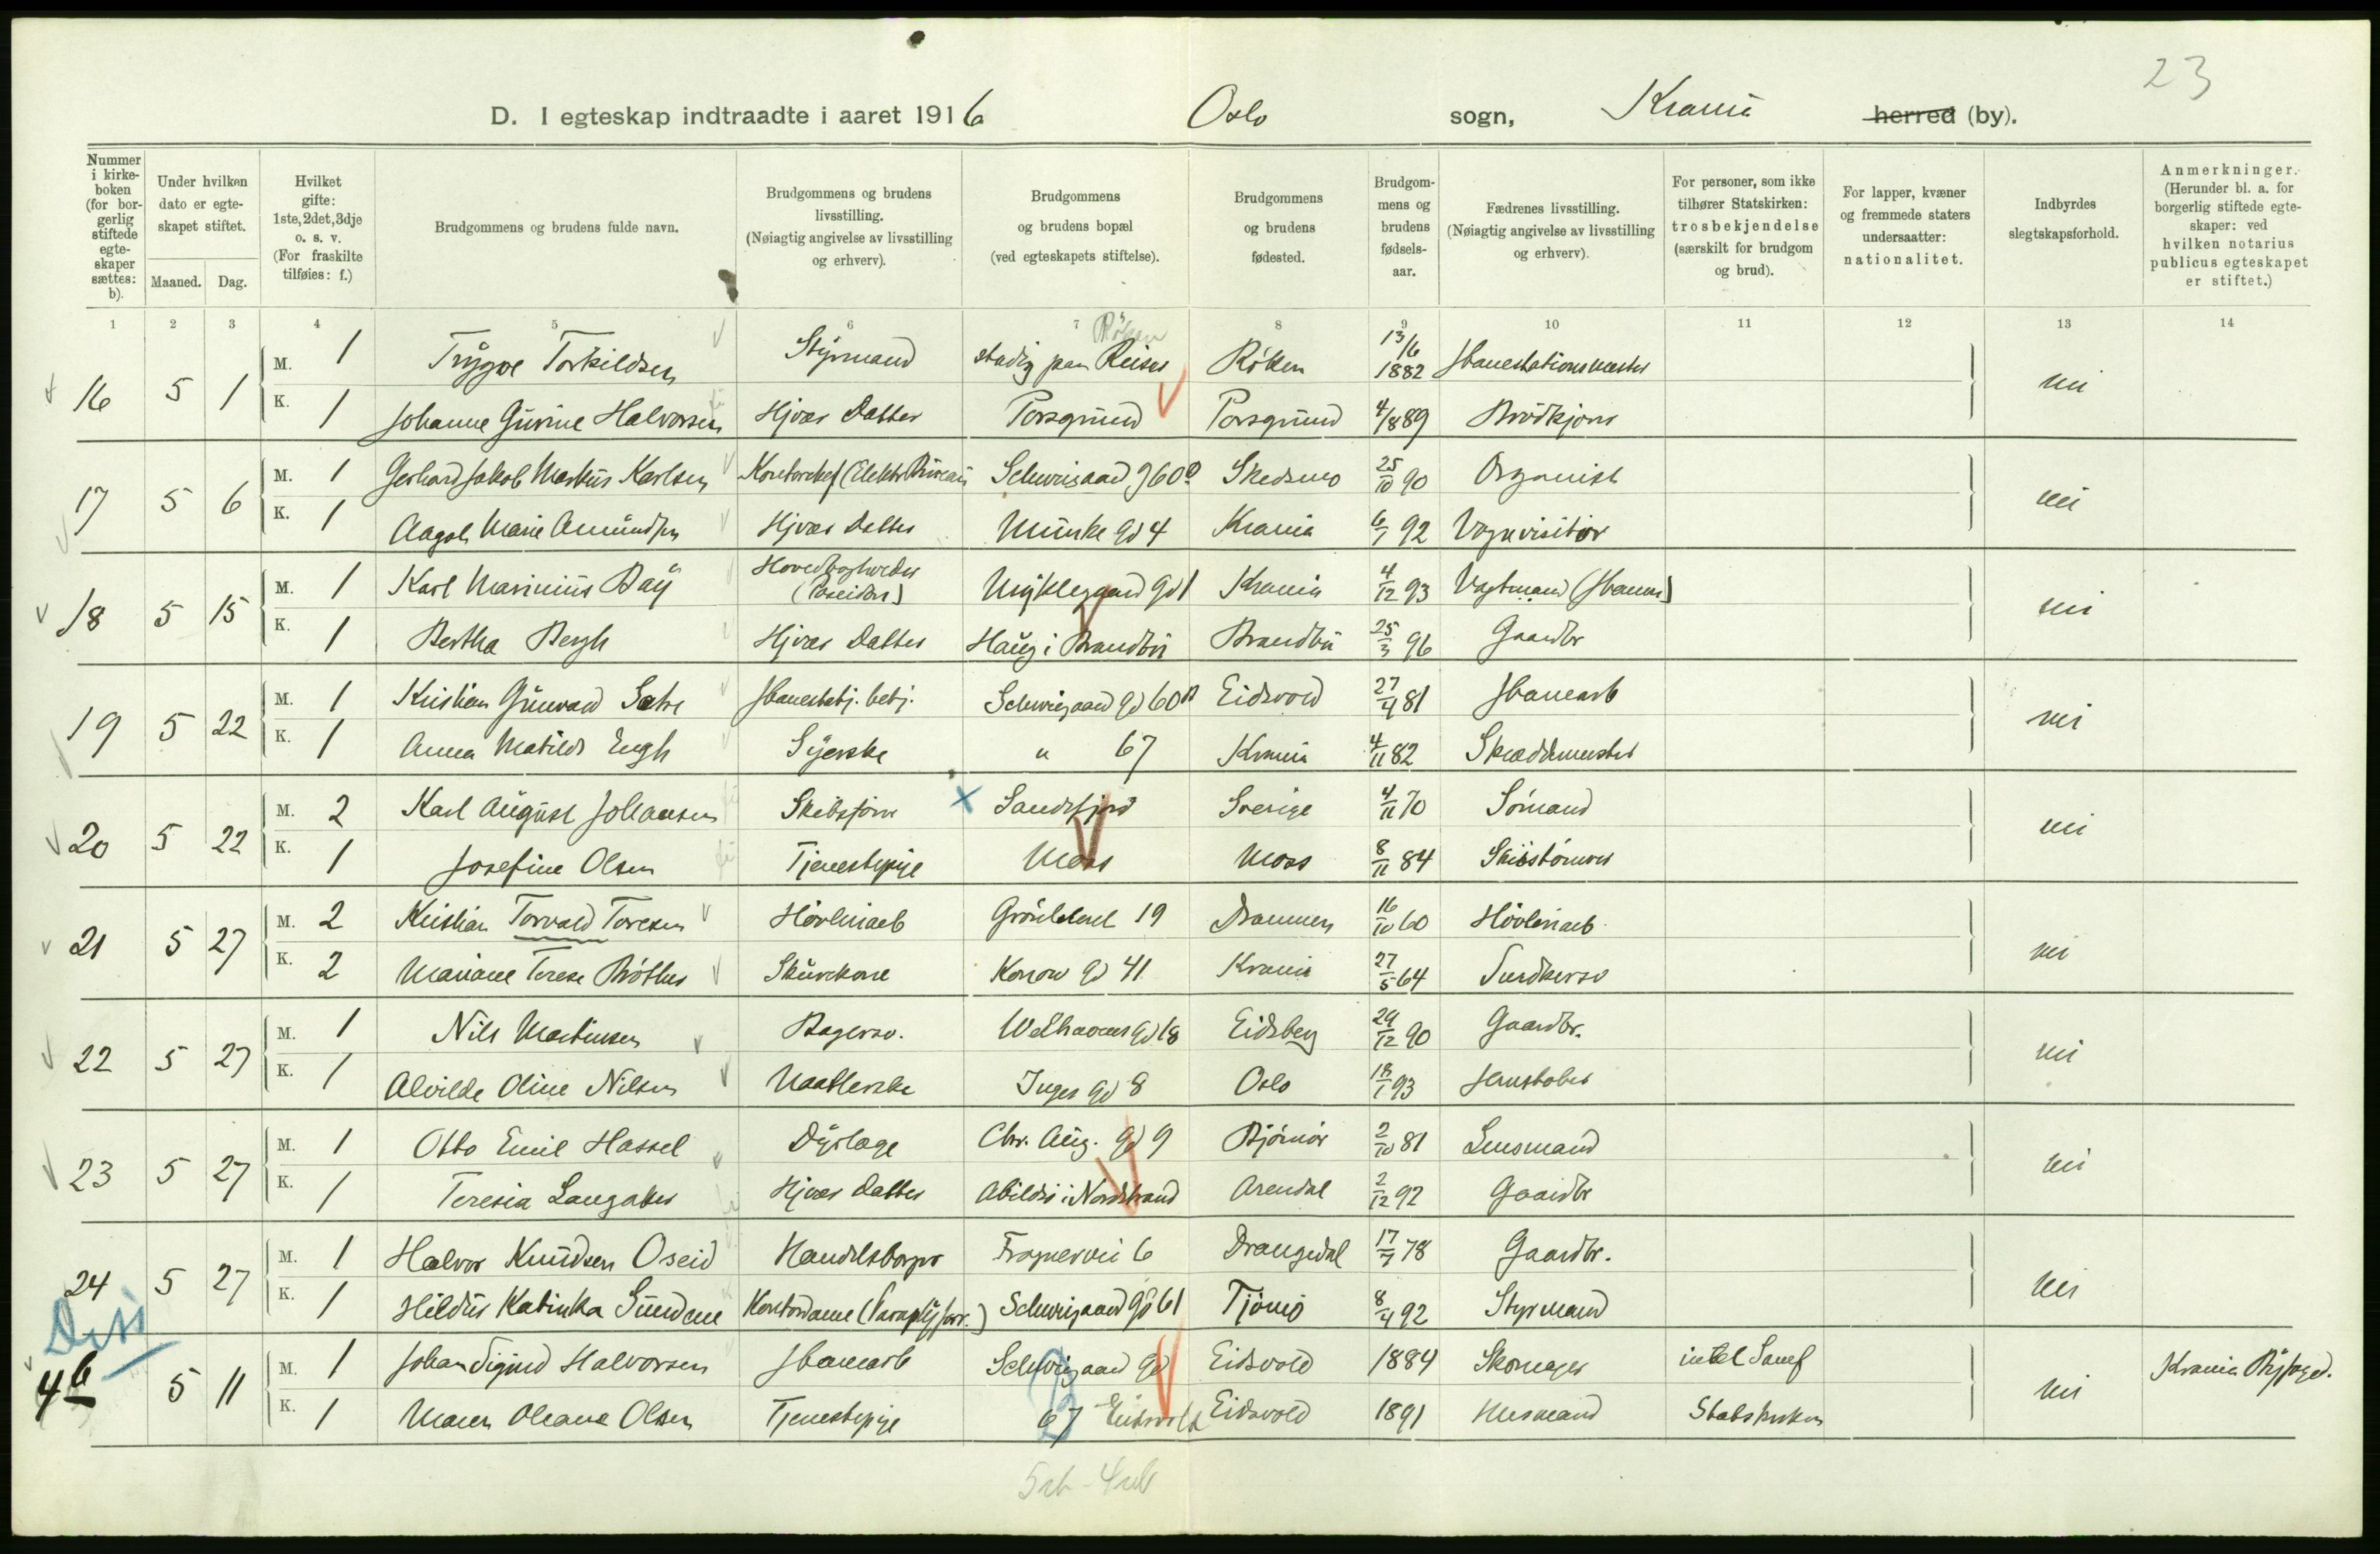 23
D. I egteskap indtraadte i aaret 1916 Oslo sogn, Krania herred (by).
Nummer i kirkeboken (for borgerlig stiftede egteskaper sættes: b).
Under hvilken dato er egteskapet stiftet.
Maaned. Dag.
Hvilket gifte: 1ste, 2det, 3dje o. s. v. (For fraskilte tilføies: f.)
Brudgommens og brudens fulde navn.
Brudgommens og brudens livsstilling. (Nøiagtig angivelse av livsstilling og erhverv).
Brudgommens og brudens bopæl (ved egteskapets stiftelse).
Brudgommens og brudens fødested.
Brudgommens og brudens fødselsaar.
Fædrenes livsstilling. (Nøiagtig angivelse av livsstilling og erhverv).
For personer, som ikke tilhører Statskirken: trosbekjendelse (særskilt for brudgom og brud).
For lapper, kvæner og fremmede staters undersaatter: nationalitet.
Indbyrdes slegtskapsforhold.
Anmerkninger. (Herunder bl. a. for borgerlig stiftede egteskaper: ved hvilken notarius publicus egteskapet er stiftet.)
1 2 3 4 5 6 7 8 9 10 11 12 13 14
Røken
16 5 1 M. 1 Trygve Torkildsen Styrmand stadig paa Reiser Røken 13/6 1882 Jbanestationsmester nei
K. 1 Johanne Gurine Halvorsen Hjvær. Datter Porsgrund Porsgrund 4/8 89 Brødkjører
17 5 6 M. 1 Gerhard Jakob Markus Karlsen Kontorchef (Elektr. Bureau) Schweigaard g 60 Skedsmo 25/10 90 Organist nei
K. 1 Aagot Marie Amundsen Hjvær. Datter Munke gd 4 Krania 92 Vognvisitør
18 5 15 M. 1 Karl Marinius Bay (Poseidon) Myklegaard gd 1 Krania 4/12 93 Vagtmand (Jbanen) nei
K. 1 Bertha Bergh Hjvær. Datter Haug i Brandbu Brandbu 25/3 96 Gaardbr
19 5 22 M. 1 Kristian Gunvald Sætre Jbanebetj. Schweigaard gd 60 Eidsvold 27/4 81 Jbanearb nei
K. 1 Anna Matilde Engh Syerske " 67 Krania 4/11 82 Skræddermester
20 5 22 M. 2 Karl August Johansen Skibsfører Sandefjord Sverige 4/11 70 Sømand nei
K. 1 Josefine Olsen Tjenestepige Moss Moss 8/11 84 Skibstømmer
21 5 27 M. 2 Kristian Torvald Toresen Høvleriarb Grønlandsl 19 Drammen 16/10 60 Høvleriarb. nei
K. 2 Mariane Terese Skurekone Konow gd 41 Krania 27/5 64 Snedkersv
22 5 27 M. 1 Nils Martinsen Bagersv. Welhavens gd 18 Eidsberg 29/12 90 Gaardbr. nei
K. 1 Alvilde Oline Nilsen Maatlerske Inges gd 8 Oslo 18/1 93 Jernstøber
23 5 27 M. 1 Otto Emil Hassel Dyrlæge Chr. Aug. gd 9 Bjørnør 2/10 81 Lensmand nei
K. 1 Teresia Langaker Hjvær. Datter Abildsø i Nordstrand Arendal 2/12 92 Gaardbr
24 5 27 M. 1 Halvor Knudsen Oseid Handelsborger Frognervei 6 Drangedal 17/7 78 Gaardbr. nei
K. 1 Hildur Katinka Gundene Kontordame (Paraplyforr.) Schweigaard gd 61 Tjømø 8/4 92 Styrmand
Diss
4 b 5 11 M. 1 Johan Sigurd Halvorsen Jbanearb Schweigaard gd Eidsvold 1884 Skomager intet Samf nei Krania Byfoged.
K. 1 Maren Oleane Olsen Tjenestepige 67 Eidsvold Eidsvold 1891 Husmand Statskirken